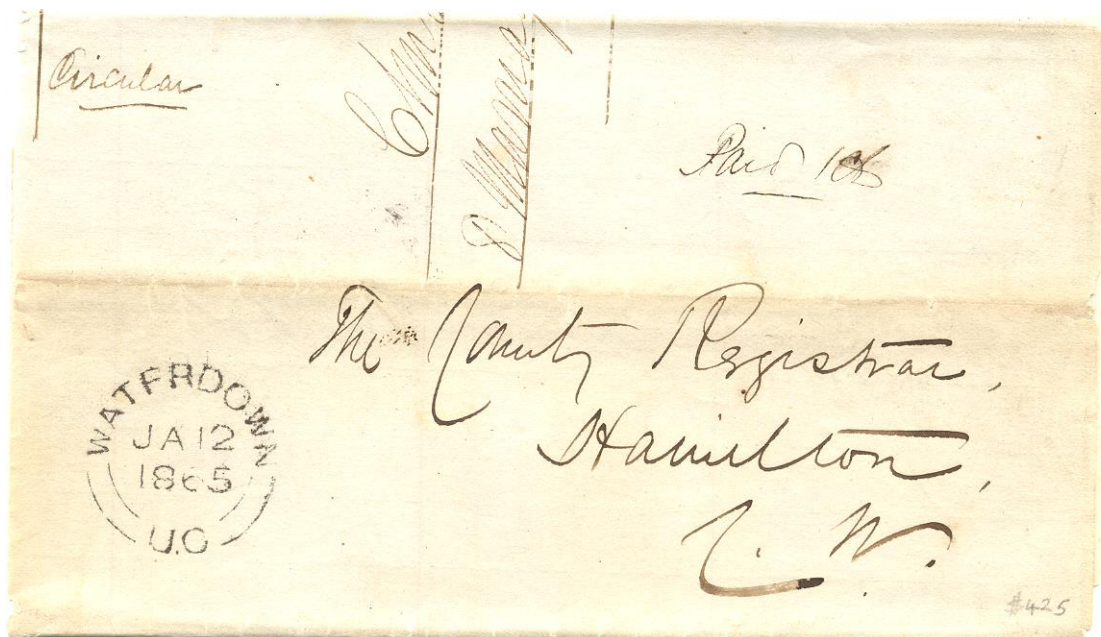 Circular
Paid 1ct
The County Registrar,
Hamilton,
C. W.
WATERDOWN
JA 12
1865
U.C
$425